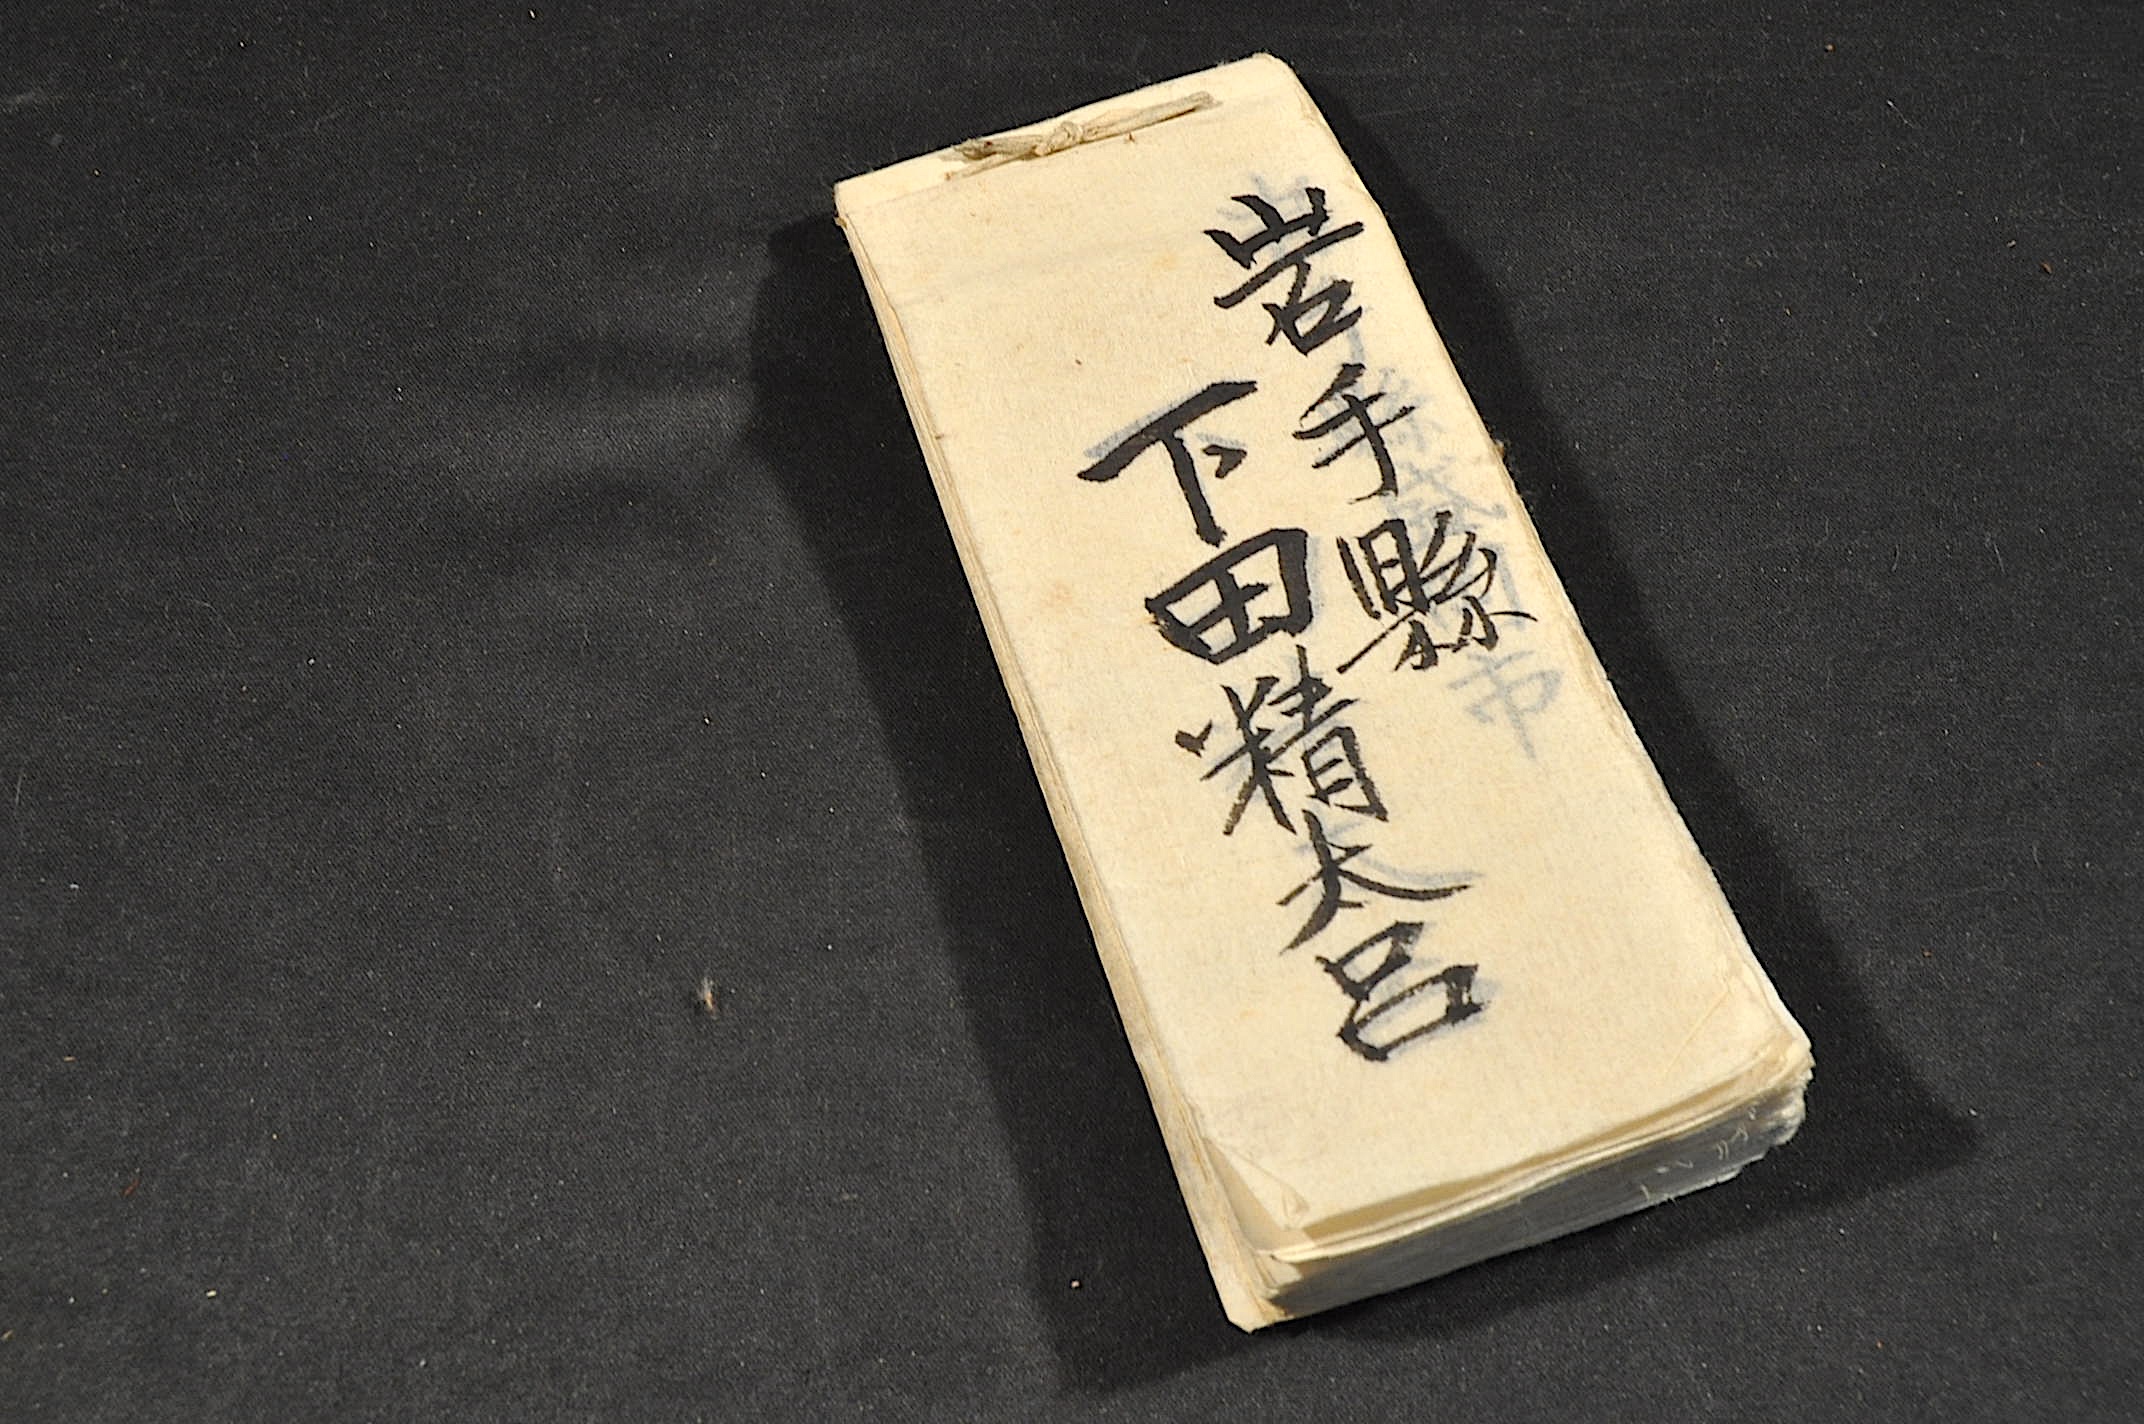 岩手縣
下田精太呂